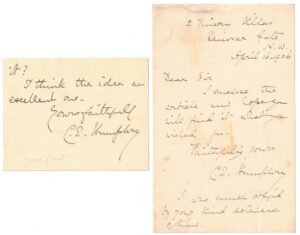 it?
I think the idea an
excellent one.
Yours faithfully
C.E. Humphry
2 Villas
Hanover Gate
N.W.
April 16 1906
Dear Sir
I enclose the
article and hope you
will find it
Faithfully yours
C.E. Humphry
I was much obliged
by your kind